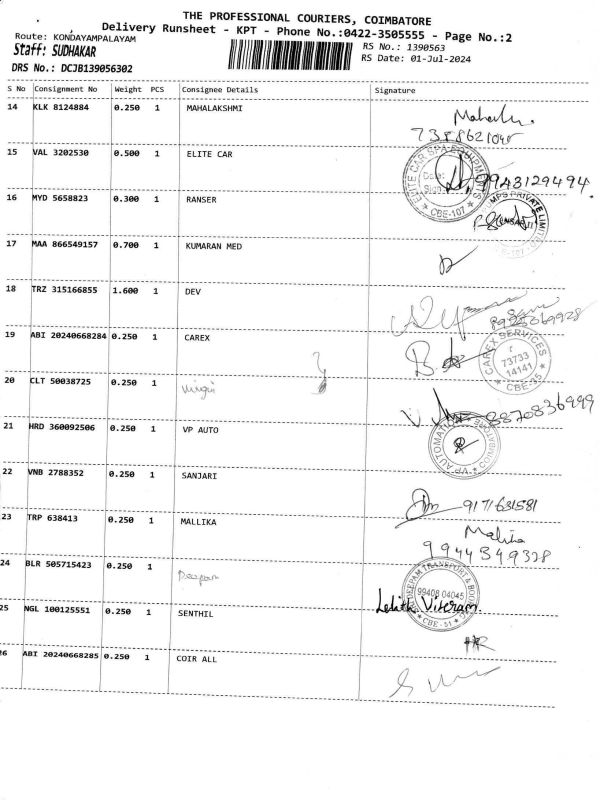 THE PROFESSIONAL COURIERS, COIMBATORE
Delivery Runsheet - KPT - Phone No.:0422-3505555 - Page No.:2
Route: KONDAYAMPALAYAM
Staff: SUDHAKAR
DRS No.: DCJB139056302
RS No.: 1390563
RS Date: 01-Jul-2024
S No Consignment No Weight PCS Consignee Details Signature
14 KLK 8124884 0.250 1 MAHALAKSHMI
15 VAL 3202530 0.500 1 ELITE CAR
ELITE CAR SPA EQUIPMENTS
CBE-107
9943129494.
16 MYD 5658823 0.300 1 RANSER
PRIVATE LIMITED
17 MAA 866549157 0.700 1 KUMARAN MED
18 TRZ 315166855 1.600 1 DEV
19 ABI 20240668284 0.250 1 CAREX
CAREX SERVICES
73733
14141
CBE-35
20 CLT 50038725 0.250 1
8870836999
21 HRD 360092506 0.250 1 VP AUTO
22 VNB 2788352 0.250 1 SANJARI
9171631581
23 TRP 638413 0.250 1 MALLIKA
9944349328
24 BLR 505715423 0.250 1 Deepam
DEEPAM TRANSPORT &
99408 04045
CBE-51
25 NGL 100125551 0.250 1 SENTHIL
26 ABI 20240668285 0.250 1 COIR ALL